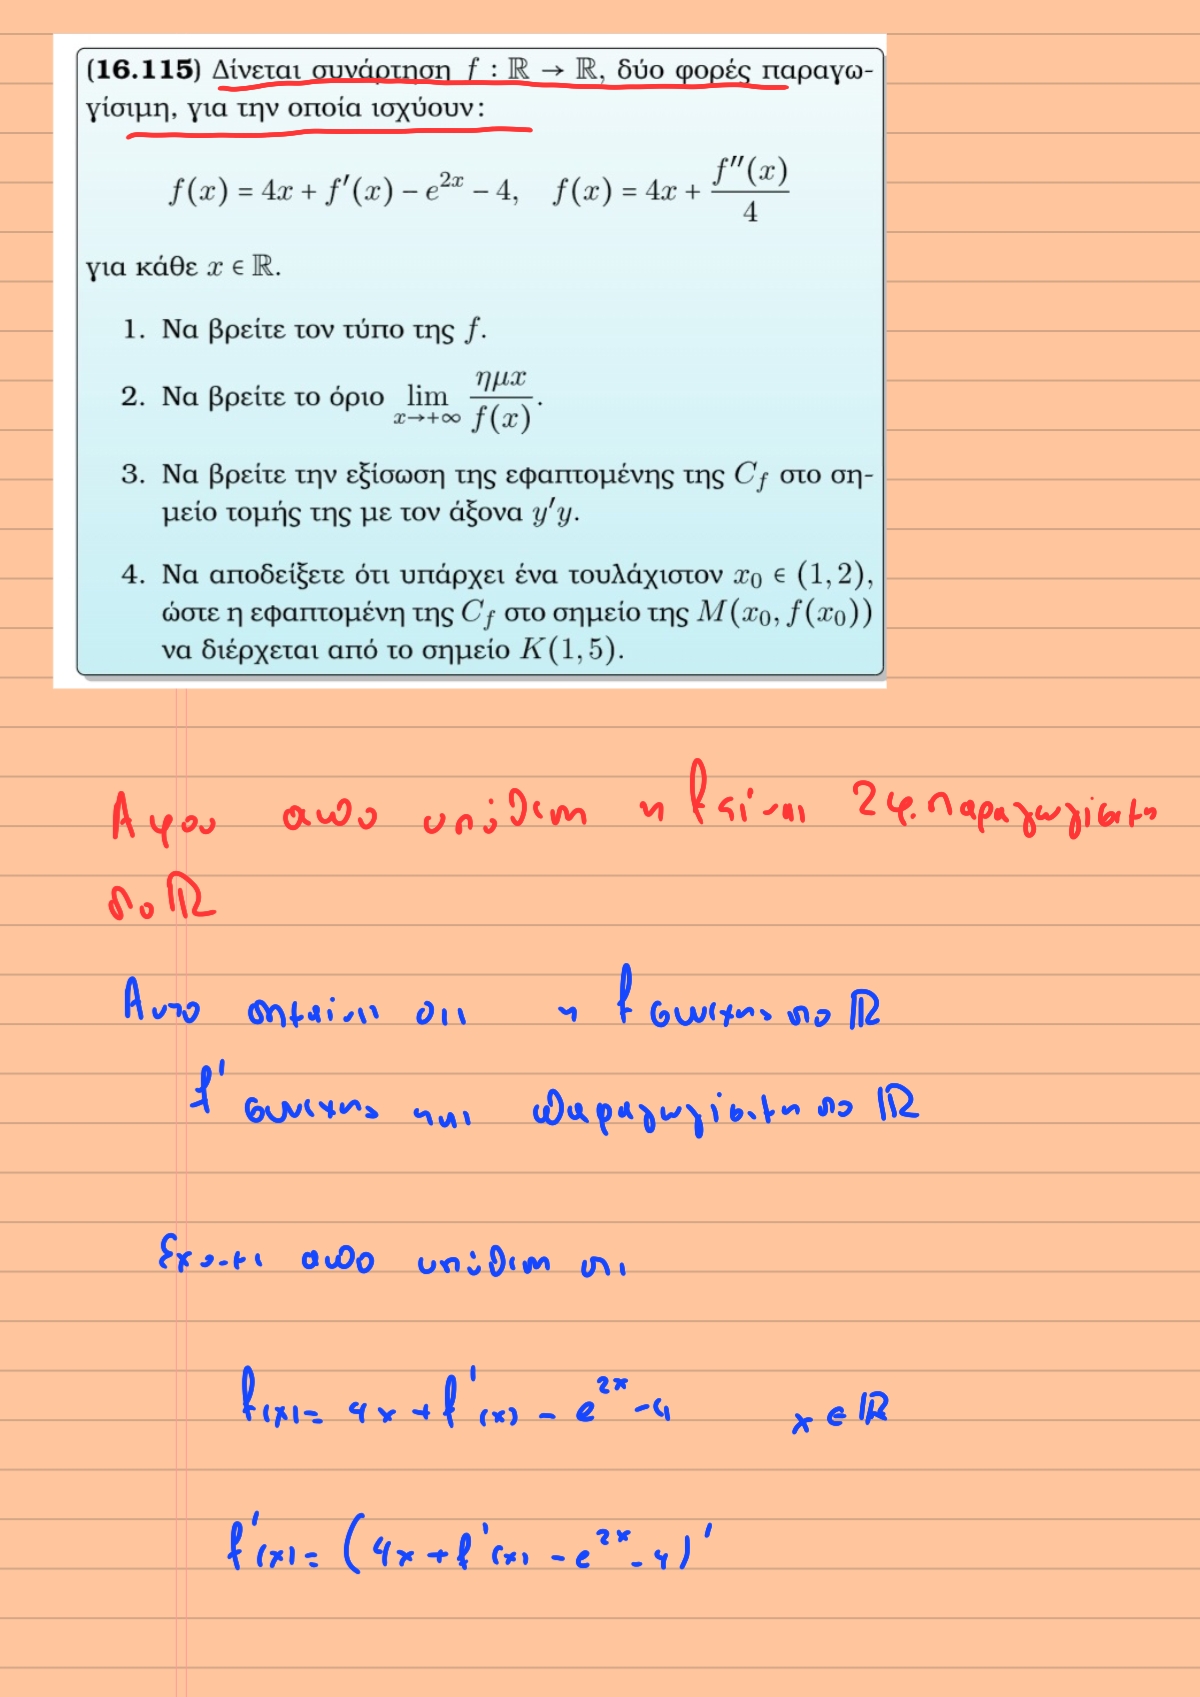 (16.115) Δίνεται συνάρτηση f : ℝ → ℝ, δύο φορές παραγω-
γίσιμη, για την οποία ισχύουν:
f(x) = 4x + f′(x) − e^{2x} − 4, f(x) = 4x + f″(x)/4
για κάθε x ∈ ℝ.
1. Να βρείτε τον τύπο της f.
2. Να βρείτε το όριο lim_{x→+∞} ημx/f(x).
3. Να βρείτε την εξίσωση της εφαπτομένης της C_f στο ση-
μείο τομής της με τον άξονα y′y.
4. Να αποδείξετε ότι υπάρχει ένα τουλάχιστον x₀ ∈ (1, 2),
ώστε η εφαπτομένη της C_f στο σημείο της M(x₀, f(x₀))
να διέρχεται από το σημείο K(1, 5).
Αφου απο υπόθεση η f είναι 2φ. παραγωγίσιμη
στο ℝ
Αυτο σημαίνει οτι η f συνεχης στο ℝ
f′ συνεχης και παραγωγίσιμη στο ℝ
Εχουμε απο υπόθεση οτι
f(x) = 4x + f′(x) − e^{2x} − 4 x ∈ ℝ
f′(x) = (4x + f′(x) − e^{2x} − 4)′